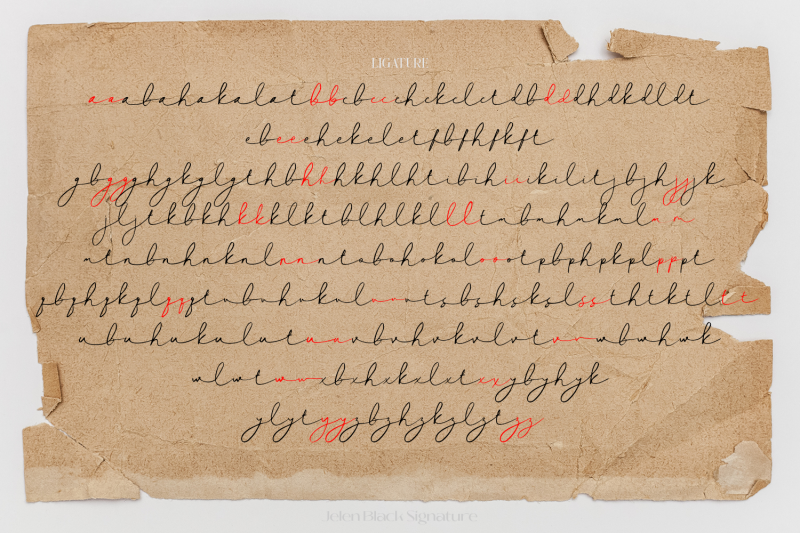 LIGATURE
aaabahakalatbbcbccchckclctdbdddhdkdldt
ebeeehekeletfbfhfkft
gbggghgkglgthbhhhkhlhtibihiiikilitjbjhjjjk
jljtkbkhkkklktlblhlkllltmbmhmkmlmm
mtnbnhnknlnnntobohokoloootpbphpkplpppt
qbqhqkqlqqqtrbrhrkrlrrrtsbshskslssthtktltt
ubuhukulutuuvbvhvkvlvtvvwbwhwk
wlwtwwxbxhxkxlxtxxybyhyk
ylytyyzbzhzkzlztzz
Jelen Black Signature